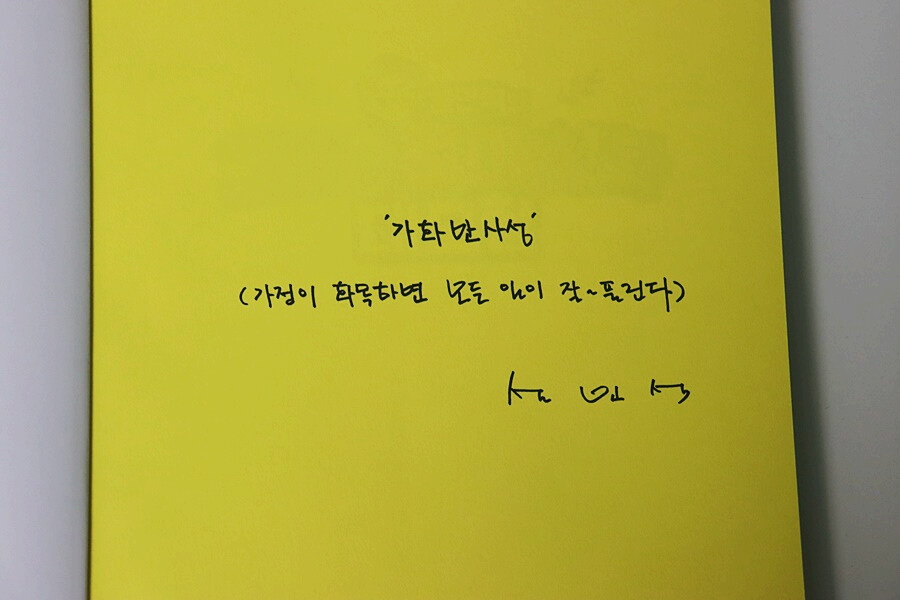 '가화만사성'
(가정이 화목하면 모든 일이 잘~풀린다)